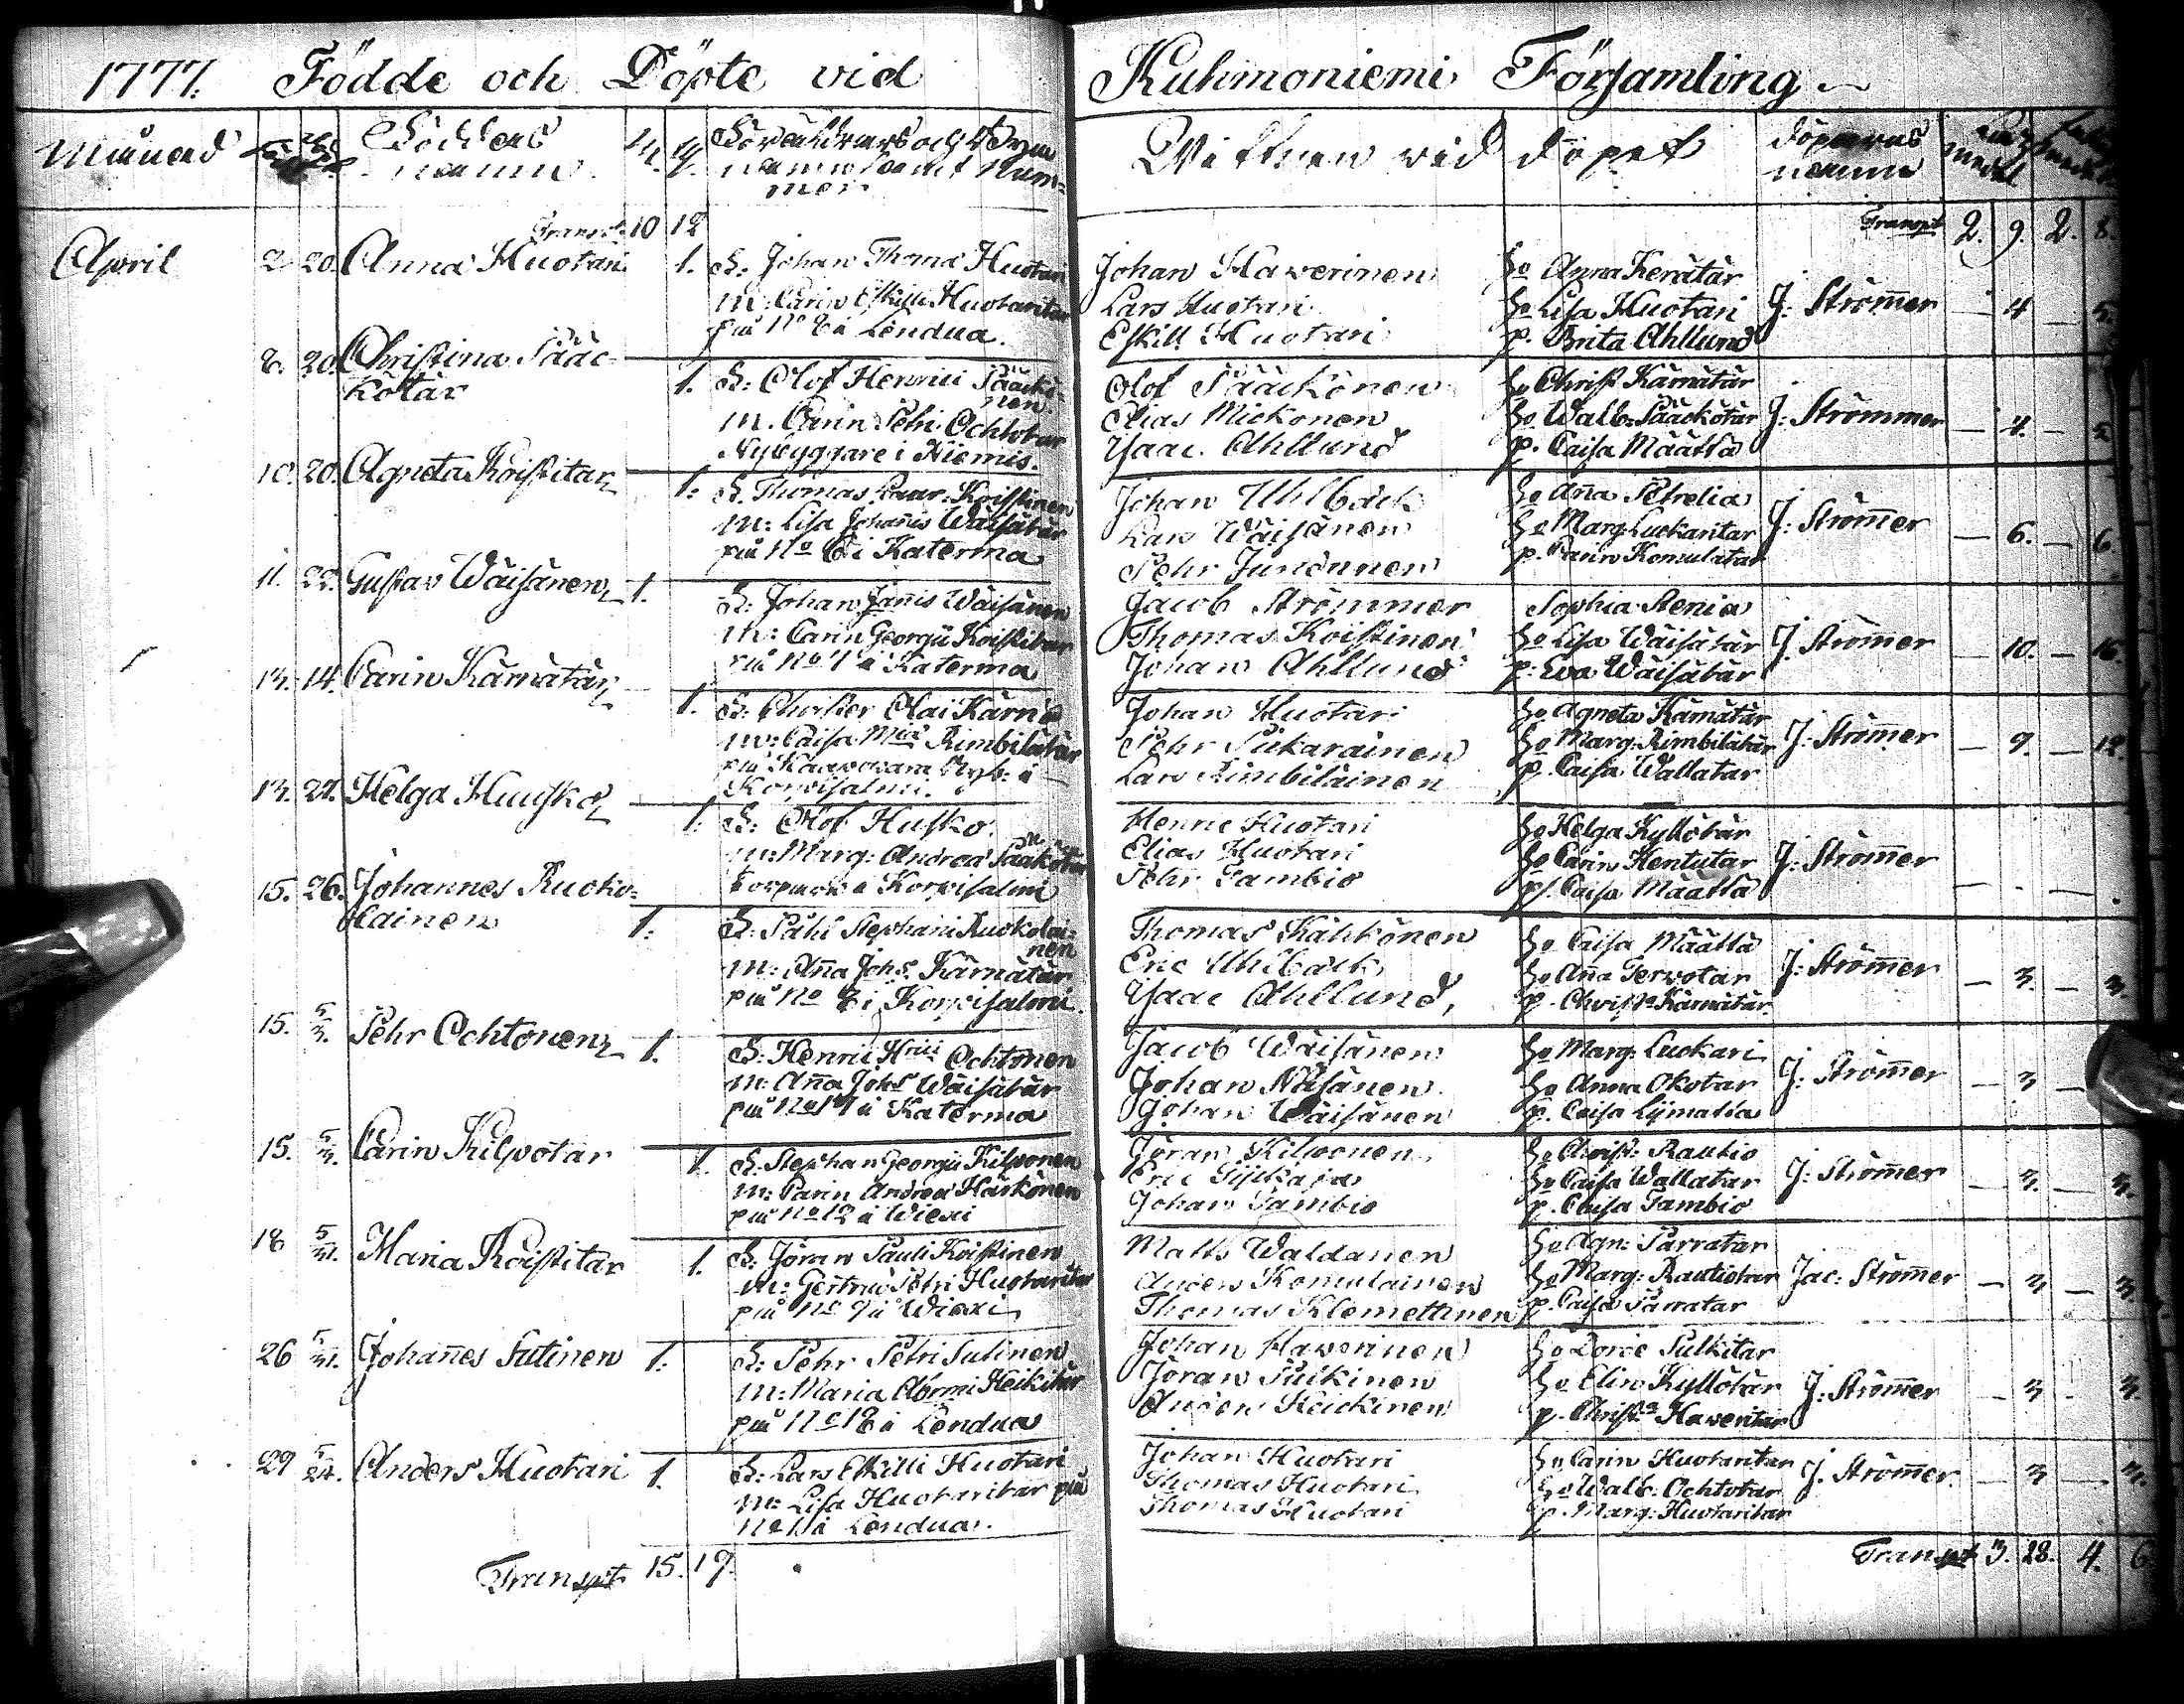 1777. Födde och Döpte vid Kuhmoniemi Församling
Månad
namn
Wittnen vid döpet
döparens namn
Transpt 10 12
Transpt 2. 9. 2. 8.
April
2. 20. Anna Huotari 1.
F: Johan Thomæ Huotari
M: Carin Eskilli Huotaritar
på No 8 i Lendua.
Johan Haverinen
Lars Huotari
Eskill Huotari
Ho Anna Kerätär
Ho Lisa Huotari
p. Brita Ahllund
J: Strömer — 4 — 5.
8. 20. Christina Pääc-
kötär 1.
F: Olof Henrici Pääckö-
nen.
M. Carin Petri Ochtotar
Nybyggare i Niemis.
Olof Pääckönen
Elias Mickonen
Ysaac Ahllund
Ho Christ Kärnätär
Ho Walb: Pääckötär
p. Caisa Määttä
J: Strömmer — 4. — 5
10. 20. Agneta Koistitar 1.
F. Thomas Koistinen
M: Lisa Johannis Wäisätär
på No 6 i Katerma
Johan Uhlbäck
Lars Wäisänen
Pehr Jundunen
Ho Aña Petrelia
Ho Marg: Luokaritar
p. Carin Komulatar
J: Strömer — 6. — 6.
11. 22. Gustav Wäisänen 1.
F: Johan Jañis Wäisänen
M: Carin Georgii Koistitar
på No 1 i Katerma
Jacob Strömmer
Thomas Koistinen
Johan Ahllund
Sophia Stenia
Ho Lisa Wäisätär
p: Eva Wäisätär
J: Strömer — 10. — 16.
13. 14. Carin Kärnätär 1.
F: Christer Olai Kärnä
M: Caisa Rimbilätär
Korvisalmi.
Johan Huotari
Pehr Piikarainen
Lars Rimbiläinen
Ho Agneta Kärnätär
Ho Marg: Rimbilätär
p. Caisa Wallatar
J: Strömer — 9. — 12.
13. 22. Helga Huusko 1.
F: Olof Husko
M: Marg: Andreæ Pääkötär
i Korvisalmi
Henric Huotari
Elias Huotari
Pehr Tambio
Ho Helga Kyllötär
Ho Carin Hentutar
p. Caisa Määttä
J: Strömer
15. 26. Johannes Ruoko-
lainen 1.
F: Påhl Stephani Ruokolai-
nen
M: Aña Johs. Kärnätär
på No 8 i Korvisalmi.
Thomas Kähkönen
Eric Uhlbäck
Ysaac Ahllund,
Ho Caisa Määttä
Ho Aña Tervotar
p. Christa Kärnätär.
J: Strömer — 3. — 3.
15. Pehr Ochtonen 1.
F: Henric Hrici Ochtonen
M: Aña Johs Wäisätär
på No 14 i Katerma
Jacob Wäisänen
Johan Näsänen
Johan Wäisänen
Ho Marg: Luokari
Ho Anna Okotar
p. Caisa Lijmatta
J: Strömer — 3 —
15. Carin Kilpotar 1.
F: Stephan Georgii Kilponen
M: Carin Andreæ Härkönen
på No 12 i Wiexi
Jöran Kilponen.
Eric Pijkaja
Johan Tambio
Ho Christ: Rautio
Ho Caisa Wallatar
p. Caisa Tambio
J: Strömer — 3. — 3.
18 Maria Koistitar 1.
F: Jöran Pauli Koistinen
M: Gertrud Petri Huotaritar
på No 9 i Wiexi
Matts Waldanen
Anders Komulainen
Thomas Klemettinen
Ho Agn: Parratar
Ho Marg: Rautiotar
p. Caisa Parratar
Jac: Strömer — 3 — 3.
26 Johañes Sutinen 1.
F: Pehr Petri Sutinen
M: Maria Heikitär
på No 18 i Lendua
Johan Haverinen
Jöran Pulkinen
Anders Heickinen
Ho Pulkitar
Ho Elin Kyllötär
p. Christa Haveritar
J: Strömer — 3 — 3.
29 Anders Huotari 1.
F: Lars Eskilli Huotari
M: Lisa Huotaritar på
No 1 i Lendua.
Johan Huotari
Thomas Huotari
Thomas Huotari
Ho Carin Huotaritar
Ho Walb: Ochtotar
p. Marg: Huotaritar
J. Strömer — 3 — 3.
Transpt 15. 19.
Transpt 3. 28. 4. 6